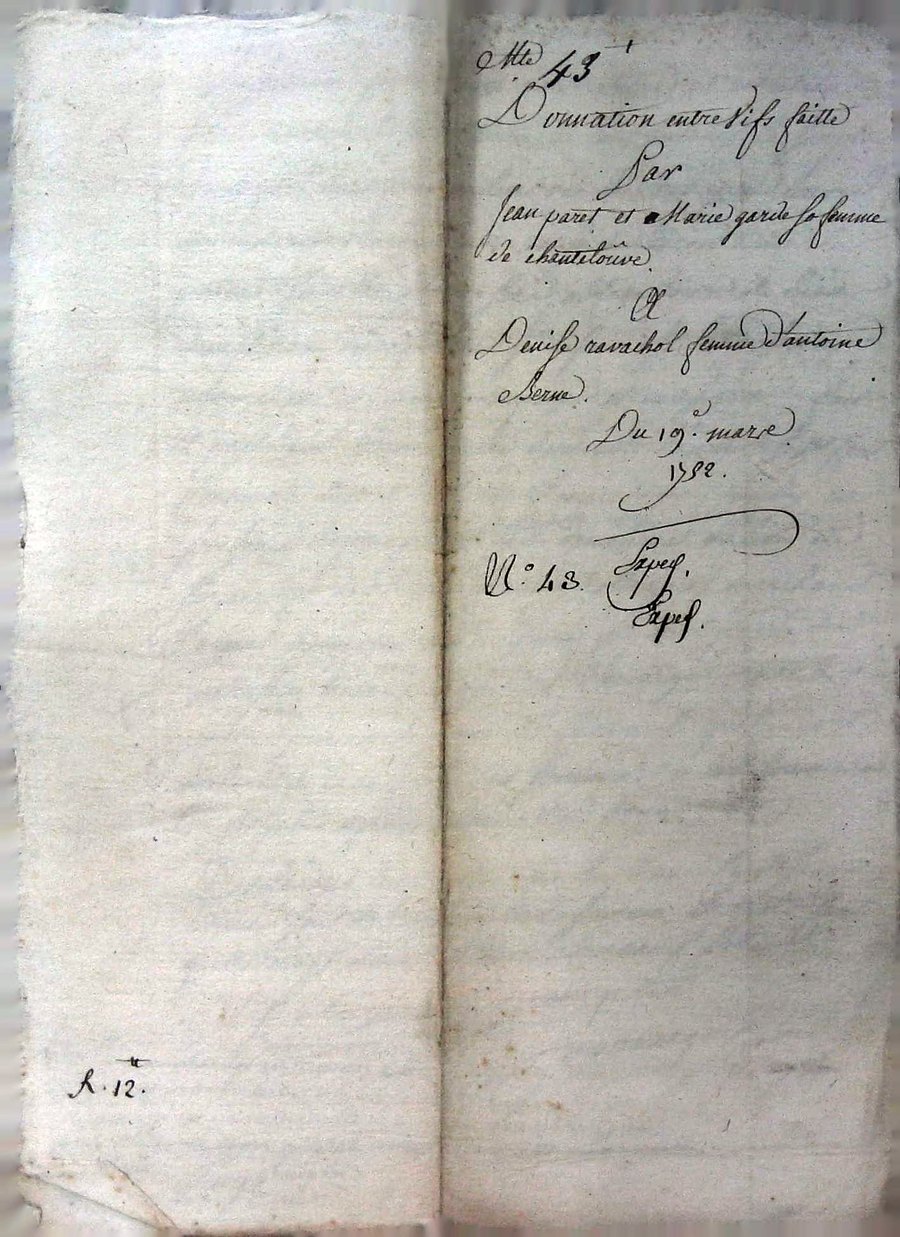 Mte 43
Donnation entre Vifs faitte
Par
Jean paret et Marie garde sa femme
de chanteloûve
A
Denise ravachol femme D'antoine
Berne.
Du 19e. mars
1792.
N.° 43.
R. 12.tt